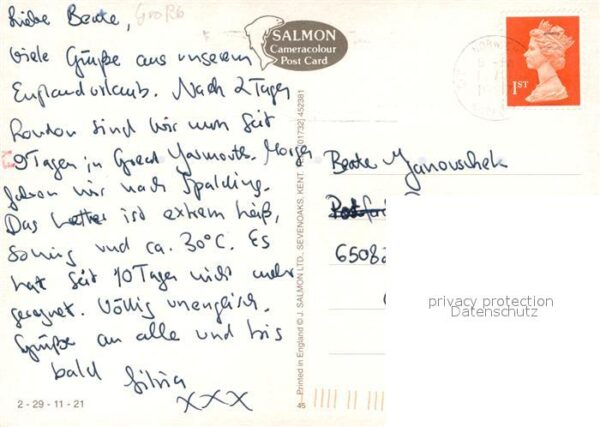 Liebe Beate, Großb
viele Grüße aus unserem
Englandurlaub. Nach 2 Tagen
London sind wir nun seit
9 Tagen in Great Yarmouth. Morgen
fahren wir nach Spalding.
Das Wetter ist extrem heiß,
sonnig und ca. 30°C. Es
hat seit 10 Tagen nicht mehr
geregnet. Völlig unenglisch.
Grüße an alle und bis
bald Silvia
XXX
2 - 29 - 11 - 21
SALMON
Cameracolour
Post Card
Printed in England © J. SALMON LTD., SEVENOAKS, KENT. [01732] 452381
45
1ST
Beate Janouschek
6508
privacy protection
Datenschutz